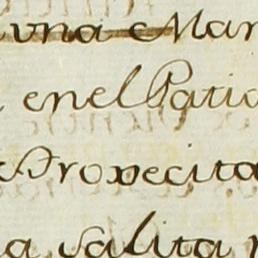 una Mar
enel Patio
Provecita
a salita